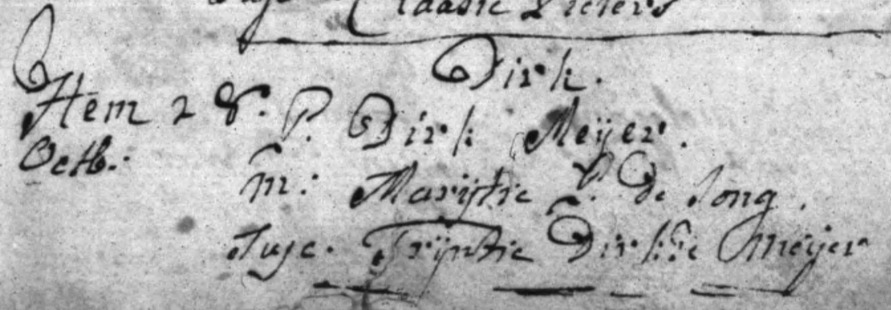 Tuge Claasie Pieters
Dirk.
Item 28. P. Dirk Meijer.
Octb. m: Marijtie P. de Jong.
Tuge. Trijntie Dirkse Meijer